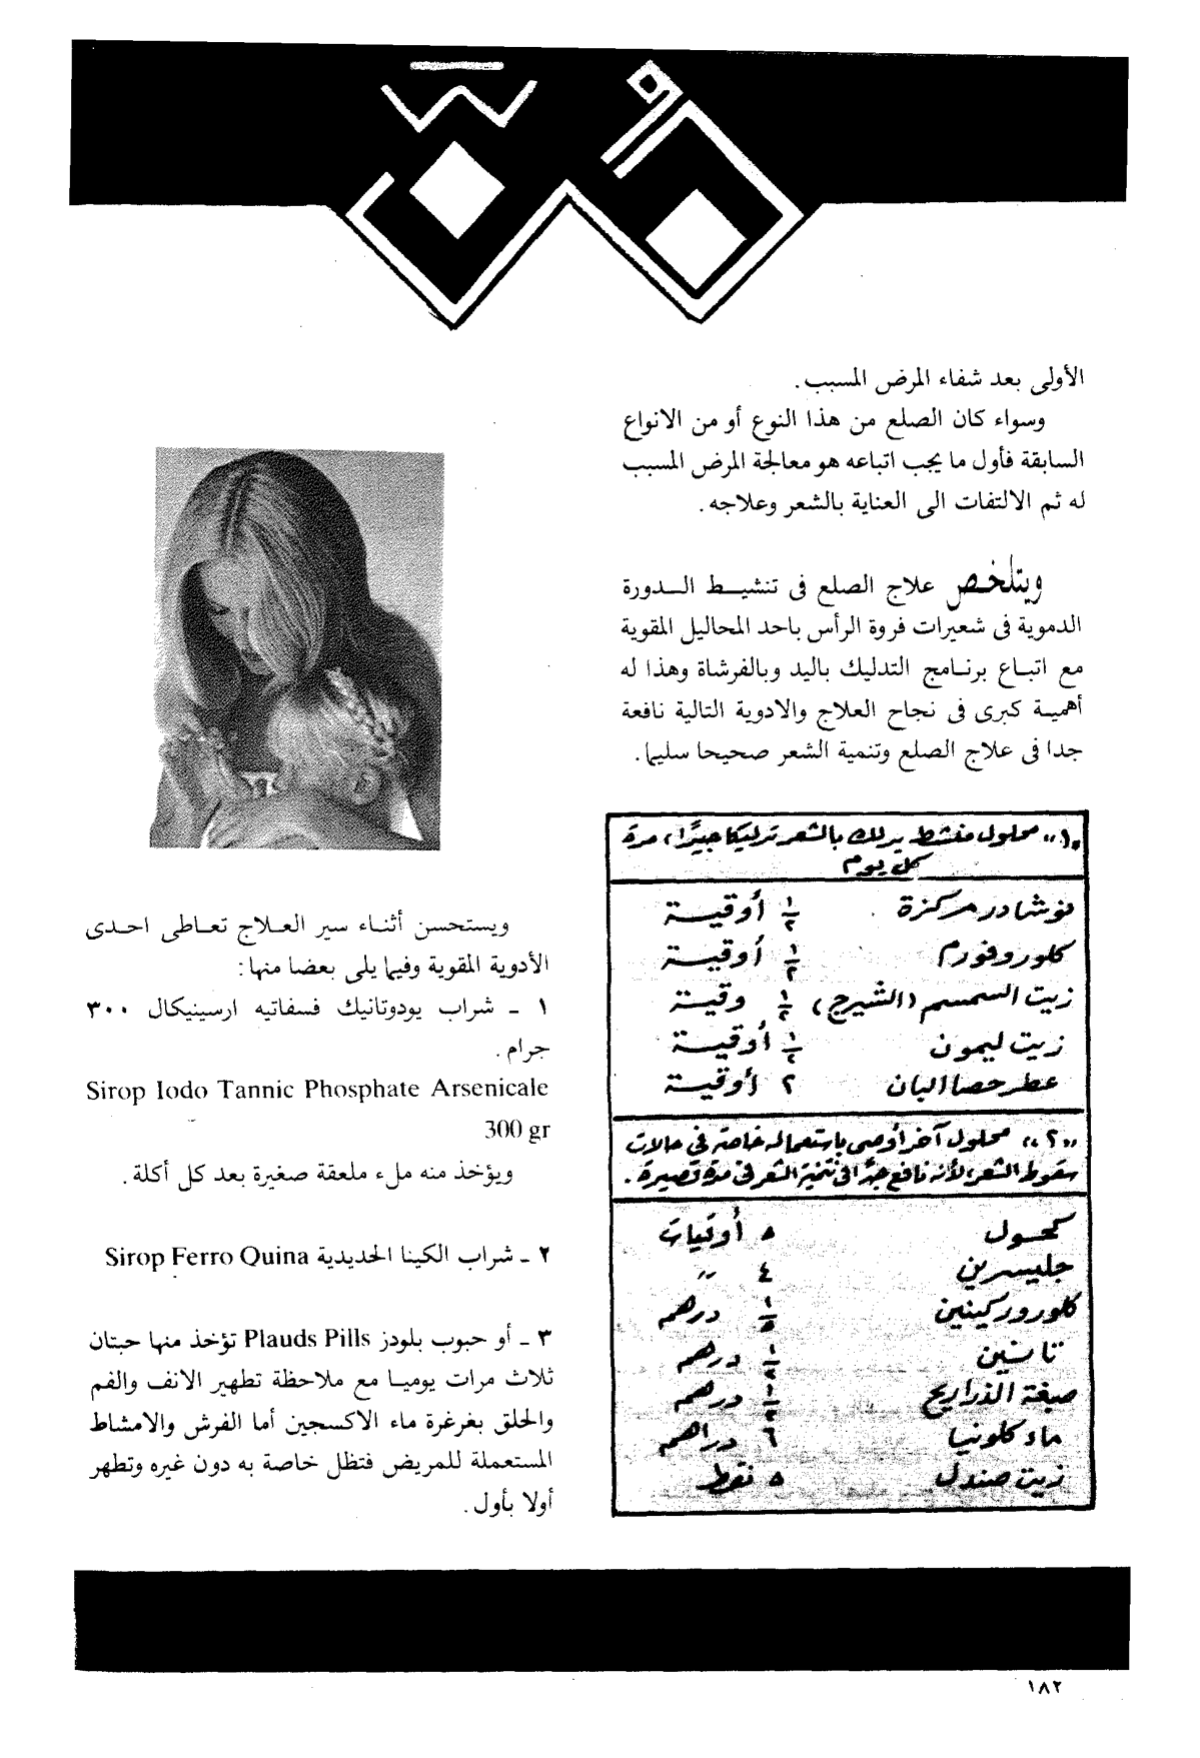 الأولى بعد شفاء المرض المسبب .
وسواء كان الصلع من هذا النوع أو من الانواع
السابقة فأول ما يجب اتباعه هو معالجة المرض المسبب
له ثم الالتفات الى العناية بالشعر وعلاجه .
ويتلخص علاج الصلع فى تنشيط الدورة
الدموية فى شعيرات فروة الرأس باحد المحاليل المقوية
مع اتباع برنامج التدليك باليد وبالفرشاة وهذا له
أهمية كبرى فى نجاح العلاج والادوية التالية نافعة
جدا فى علاج الصلع وتنمية الشعر صحيحا سليما .
«١» محلول منشط يدلك بالشعر تدليكا جيدًا، مرة
كل يوم
نوشادر مركزة ١/٢ أوقية
كلوروفورم ١/٢ أوقية
زيت السمسم (الشيرج) ١/٢ وقية
زيت ليمون ١/٢ أوقية
عطر حصا البان ٢ أوقية
«٢» محلول آخر أوصى باستعماله خاصة فى حالات
سقوط الشعر، لأنه نافع جدًا فى تنمية الشعر فى مدة قصيرة .
كحول ٥ أوقيات
جليسرين ٤ ״
كلورور كينين ١/٥ درهم
تانين درهم
صبغة الذراريح درهم
ماء كلونيا ٦ دراهم
زيت صندل ٥ نقط
ويستحسن أثناء سير العلاج تعاطى احدى
الأدوية المقوية وفيما يلى بعضا منها :
١ ـ شراب يودوتانيك فسفاتيه ارسينيكال ٣٠٠
جرام .
Sirop Iodo Tannic Phosphate Arsenicale
300 gr
ويؤخذ منه ملء ملعقة صغيرة بعد كل أكلة .
٢ ـ شراب الكينا الحديدية Sirop Ferro Quina
٣ ـ أو حبوب بلودز Plauds Pills تؤخذ منها حبتان
ثلاث مرات يوميا مع ملاحظة تطهير الانف والفم
والحلق بغرغرة ماء الاكسجين أما الفرش والامشاط
المستعملة للمريض فتظل خاصة به دون غيره وتطهر
أولا بأول .
١٨٢